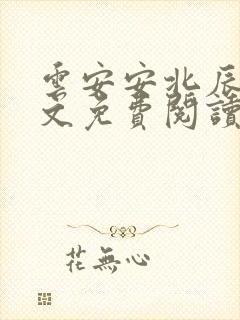 雲安安北辰
文免費閱讀
花無心